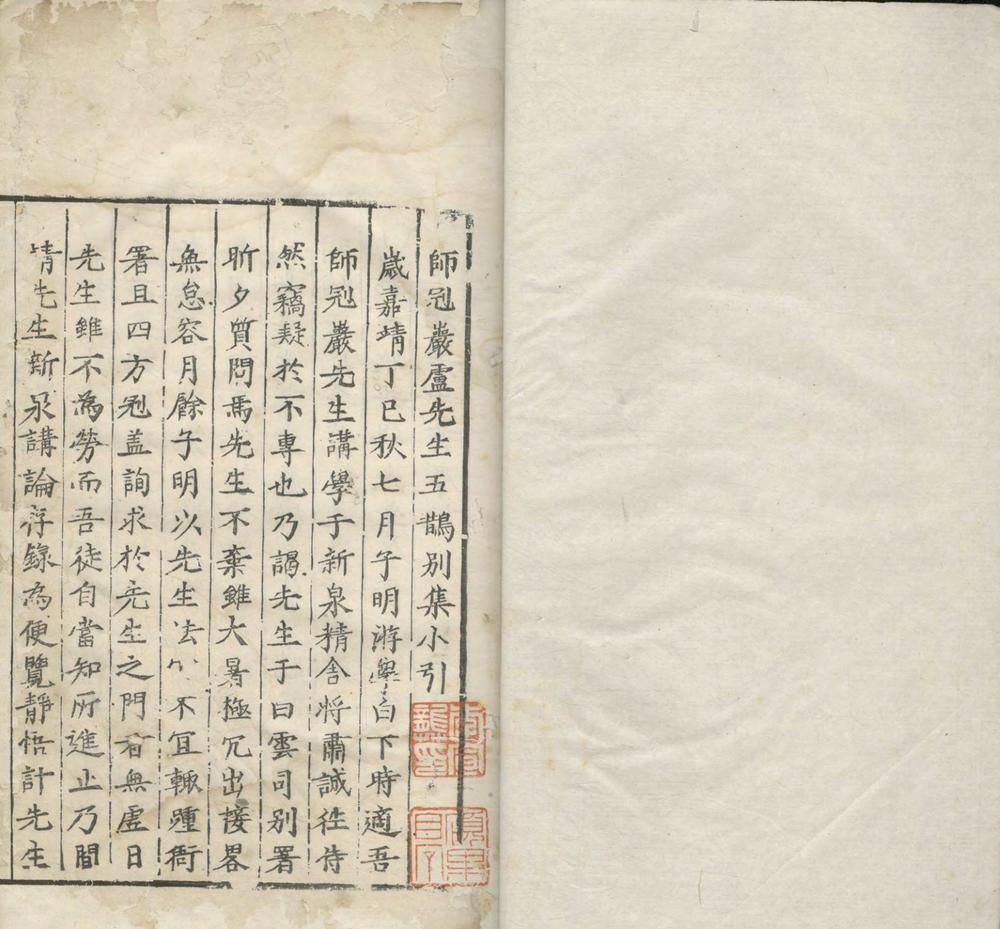 師冠巖盧先生五鵲別集小引
歲嘉靖丁巳秋七月子明游學白下時適吾
師冠巖先生講學于新泉精舍將肅誠徃侍
然竊疑於不專也乃謁先生于白雲司別署
昕夕質問焉先生不棄雖大暑極冗出接畧
無怠容月餘子明以先生法 不宜輙踵衙
署且四方冠盖詢求於先生之門者無虛日
先生雖不為勞而吾徒自當知所進止乃間
請先生新泉講論存錄為便覽靜悟計先生